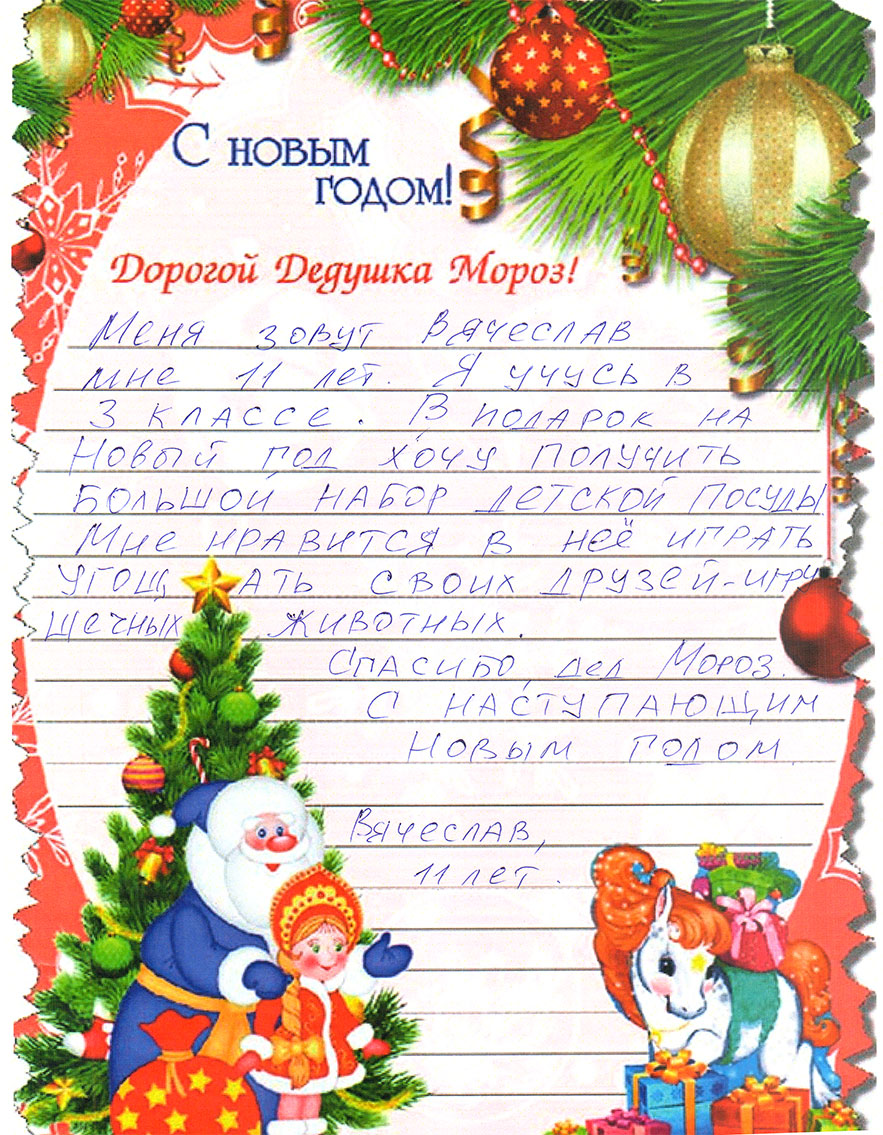 С НОВЫМ
ГОДОМ!
Дорогой Дедушка Мороз!
Меня зовут Вячеслав
мне 11 лет. Я учусь в
3 классе. В подарок на
Новый год хочу получить
большой набор детской посуды
Мне нравится в неё играть
угощать своих друзей-игру
шечных животных.
Спасибо, дед Мороз.
С наступающим
Новым годом.
Вячеслав,
11 лет.